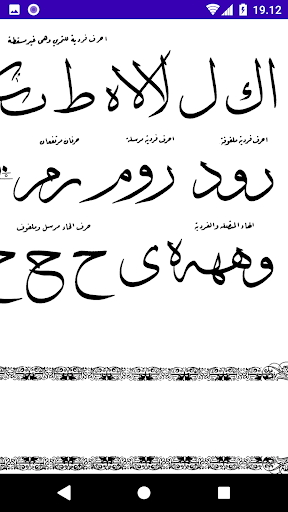 19.12
احرف فردية للترين وهى غير مسقطة
اك ل لا لا ه ط
احرف فردية ملفوفة
احرف فردية مرسلة
حرفان مرتفعان
رود روم رمر
الهاء المتصلة والفردية
حرف الحاء مرسل وملفوف
وههه ى ح ح ح